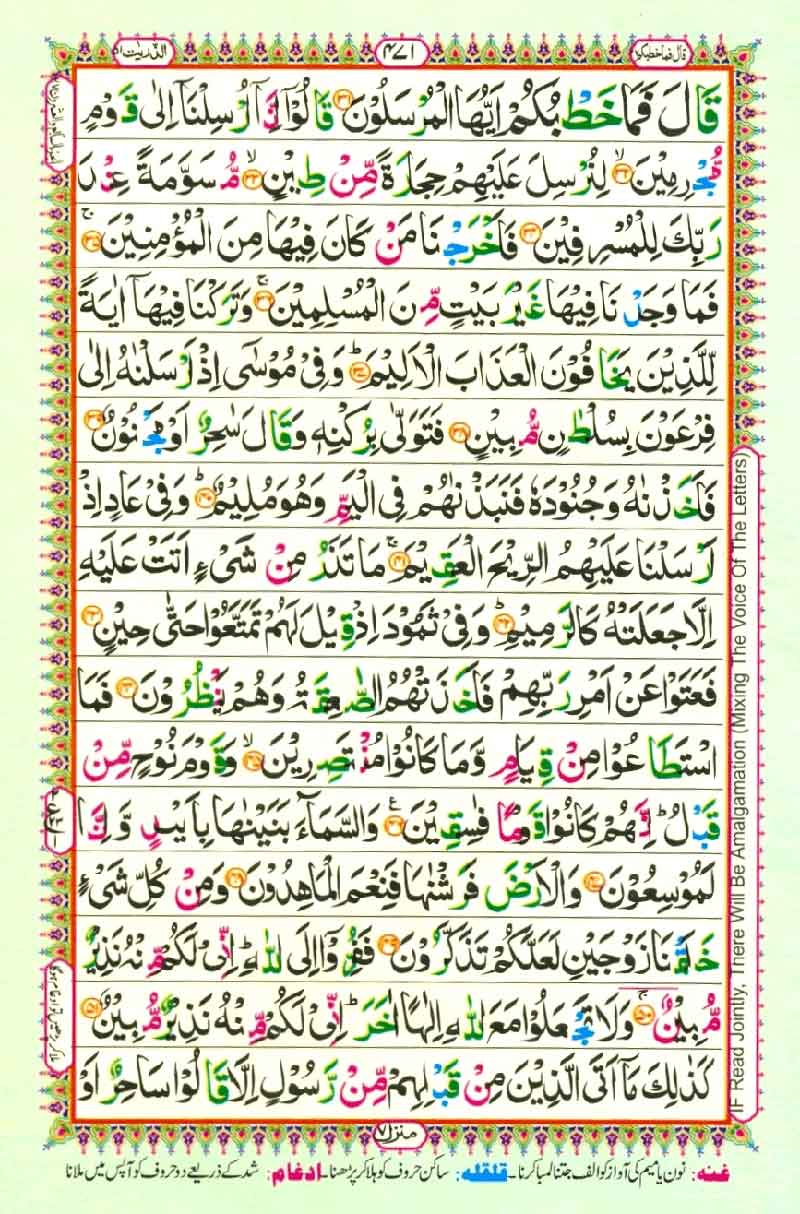 قال فما خطبکم ۴۷۱ الذّٰریٰت ۵۱
قَالَ فَمَا خَطْبُكُمْ اَیُّهَا الْمُرْسَلُوْنَ ۳۱ قَالُوْۤا اِنَّاۤ اُرْسِلْنَاۤ اِلٰی قَوْمٍ
مُّجْرِمِیْنَ ۙ۳۲ لِنُرْسِلَ عَلَیْهِمْ حِجَارَةً مِّنْ طِیْنٍ ۙ۳۳ مُّسَوَّمَةً عِنْدَ
رَبِّكَ لِلْمُسْرِفِیْنَ ۳۴ فَاَخْرَجْنَا مَنْ كَانَ فِیْهَا مِنَ الْمُؤْمِنِیْنَ ۚ۳۵
فَمَا وَجَدْنَا فِیْهَا غَیْرَ بَیْتٍ مِّنَ الْمُسْلِمِیْنَ ۚ۳۶ وَتَرَكْنَا فِیْهَاۤ اٰیَةً
لِّلَّذِیْنَ یَخَافُوْنَ الْعَذَابَ الْاَلِیْمَ ؕ۳۷ وَفِیْ مُوْسٰۤی اِذْ اَرْسَلْنٰهُ اِلٰی
فِرْعَوْنَ بِسُلْطٰنٍ مُّبِیْنٍ ۳۸ فَتَوَلّٰی بِرُكْنِهٖ وَقَالَ سٰحِرٌ اَوْ مَجْنُوْنٌ ۳۹
فَاَخَذْنٰهُ وَجُنُوْدَهٗ فَنَبَذْنٰهُمْ فِی الْیَمِّ وَهُوَ مُلِیْمٌ ؕ۴۰ وَفِیْ عَادٍ اِذْ
اَرْسَلْنَا عَلَیْهِمُ الرِّیْحَ الْعَقِیْمَ ۚ۴۱ مَا تَذَرُ مِنْ شَیْءٍ اَتَتْ عَلَیْهِ
اِلَّا جَعَلَتْهُ كَالرَّمِیْمِ ؕ۴۲ وَفِیْ ثَمُوْدَ اِذْ قِیْلَ لَهُمْ تَمَتَّعُوْا حَتّٰی حِیْنٍ ۴۳
فَعَتَوْا عَنْ اَمْرِ رَبِّهِمْ فَاَخَذَتْهُمُ الصّٰعِقَةُ وَهُمْ یَنْظُرُوْنَ ۴۴ فَمَا
اسْتَطَاعُوْا مِنْ قِیَامٍ وَّمَا كَانُوْا مُنْتَصِرِیْنَ ۙ۴۵ وَقَوْمَ نُوْحٍ مِّنْ
قَبْلُ ؕ اِنَّهُمْ كَانُوْا قَوْمًا فٰسِقِیْنَ ۴۶ وَالسَّمَآءَ بَنَیْنٰهَا بِاَیْىدٍ وَّاِنَّا
لَمُوْسِعُوْنَ ۴۷ وَالْاَرْضَ فَرَشْنٰهَا فَنِعْمَ الْمَاهِدُوْنَ ۴۸ وَمِنْ كُلِّ شَیْءٍ
خَلَقْنَا زَوْجَیْنِ لَعَلَّكُمْ تَذَكَّرُوْنَ ۴۹ فَفِرُّوْۤا اِلَی اللّٰهِ ؕ اِنِّیْ لَكُمْ مِّنْهُ نَذِیْرٌ
مُّبِیْنٌ ۚ۵۰ وَلَا تَجْعَلُوْا مَعَ اللّٰهِ اِلٰهًا اٰخَرَ ؕ اِنِّیْ لَكُمْ مِّنْهُ نَذِیْرٌ مُّبِیْنٌ ۚ۵۱
كَذٰلِكَ مَاۤ اَتَی الَّذِیْنَ مِنْ قَبْلِهِمْ مِّنْ رَّسُوْلٍ اِلَّا قَالُوْا سَاحِرٌ اَوْ
منزل ۷
غنہ: نون یا میم کی آواز کو الف جتنا لمبا کرنا۔ قلقلہ: ساکن حروف کو ہلا کر پڑھنا۔ ادغام: شد کے ذریعے دو حروف کو آپس میں ملانا
IF Read Jointly, There Will Be Amalgamation (Mixing The Voice Of The Letters)